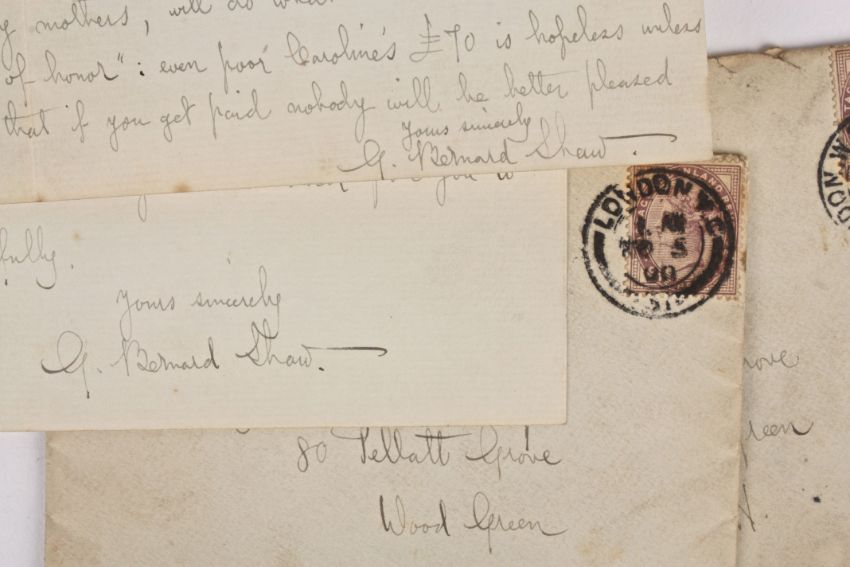 mothers, will do what
of honor": even poor Caroline's £70 is hopeless unless
that if you get paid nobody will be better pleased
Yours sincerely
G. Bernard Shaw.
you to
fully.
Yours sincerely
G. Bernard Shaw.
LONDON W.C
5
00
80 Pellatt Grove
Wood Green
rove
reen
N.